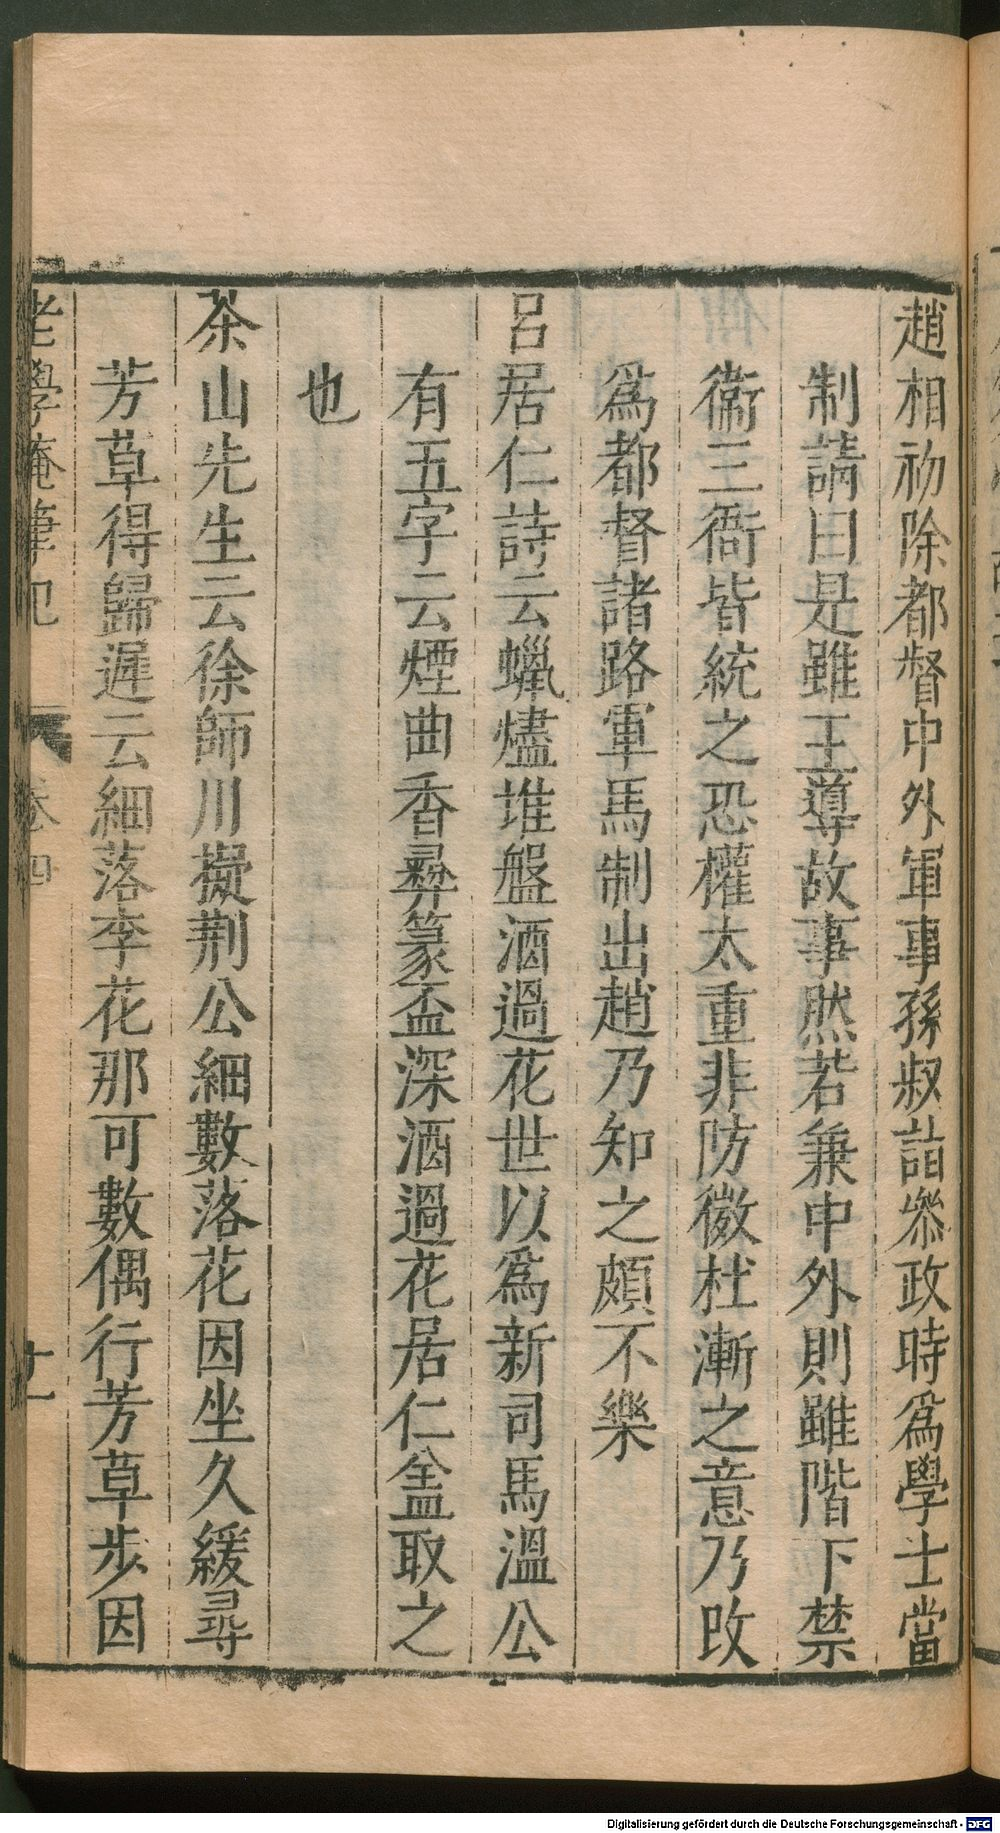 趙相初除都督中外軍事孫叔詣叅政時爲學士當
制請曰是雖王導故事然若兼中外則雖階下禁
衞三衙皆統之恐權太重非防微杜漸之意乃改
爲都督諸路軍馬制出趙乃知之頗不樂
呂居仁詩云蠟燼堆盤酒過花世以爲新司馬溫公
有五字云煙曲香彞篆盃深酒過花居仁盖取之
也
茶山先生云徐師川擬荆公細數落花因坐久緩尋
芳草得歸遲云細落李花那可數偶行芳草步因
老學庵筆記
卷四
十一
Digitalisierung gefördert durch die Deutsche Forschungsgemeinschaft - DFG